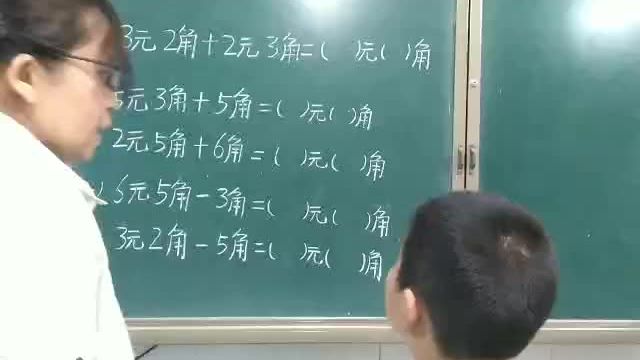 3元2角+2元3角=( )元( )角
5元3角+5角=( )元( )角
2元5角+6角=( )元( )角
6元5角-3角=( )元( )角
3元2角-5角=( )元( )角